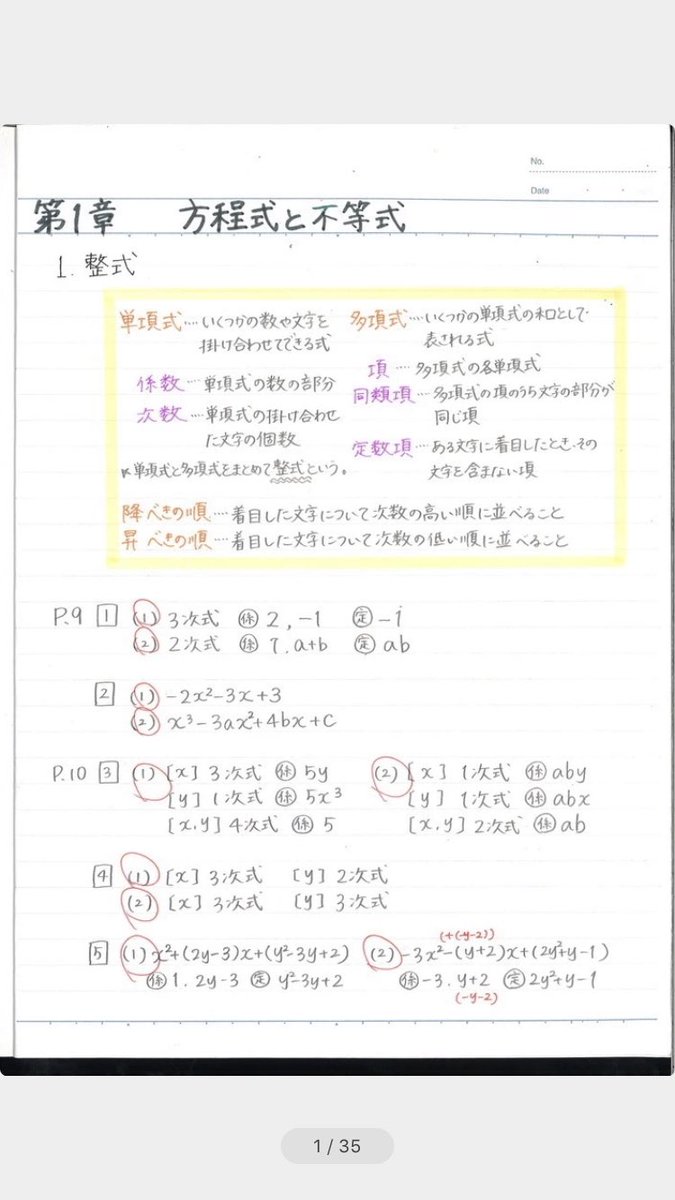 No.
Date
第1章 方程式と不等式
1. 整式
単項式…いくつかの数や文字を
掛け合わせてできる式
係数…単項式の数の部分
次数…単項式の掛け合わせ
た文字の個数
※単項式と多項式をまとめて整式という。
多項式…いくつかの単項式の和として
表される式
項…多項式の各単項式
同類項…多項式の項のうち文字の部分が
同じ項
定数項…ある文字に着目したとき、その
文字を含まない項
降べきの順…着目した文字について次数の高い順に並べること
昇べきの順…着目した文字について次数の低い順に並べること
P.9 1 (1) 3次式 係 2, -1 定 -1
(2) 2次式 係 7, a+b 定 ab
2 (1) -2x²-3x+3
(2) x³-3ax²+4bx+c
P.10 3 (1) [x] 3次式 係 5y
[y] 1次式 係 5x³
[x,y] 4次式 係 5
(2) [x] 1次式 係 aby
[y] 1次式 係 abx
[x,y] 2次式 係 ab
4 (1) [x] 3次式 [y] 2次式
(2) [x] 3次式 [y] 3次式
5 (1) x²+(2y-3)x+(y²-3y+2)
係 1, 2y-3 定 y²-3y+2
(+(-y-2))
(2) -3x²-(y+2)x+(2y²+y-1)
係 -3, y+2 定 2y²+y-1
(-y-2)
1 / 35